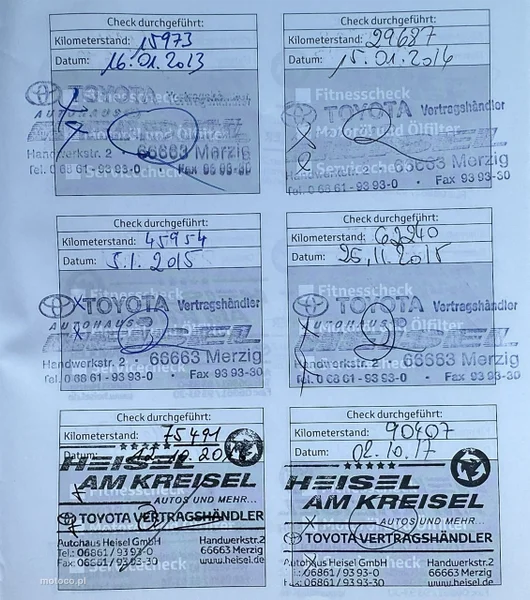 Check durchgeführt:
Kilometerstand: 15973
Datum: 16.01.2013
Fitnesscheck
TOYOTA Vertragshändler
AUTOHAUS
Motoröl und Ölfilter
Handwerkstr. 2 66663 Merzig
Servicecheck
Tel. 0 68 61 - 93 93-0 • Fax
Check durchgeführt:
Kilometerstand: 29687
Datum: 15.01.2014
Fitnesscheck
TOYOTA Vertragshändler
Motoröl und Ölfilter
Handwerkstr. 2 66663 Merzig
Servicecheck
Tel. 0 68 61 - 93 93-0 • Fax 93 93-30
Check durchgeführt:
Kilometerstand: 45954
Datum: 5.1.2015
Fitnesscheck
TOYOTA Vertragshändler
AUTOHAUS HEISEL
Handwerkstr. 2 • 66663 Merzig
Tel. 0 68 61 - 93 93-0 • Fax 93 93-30
Check durchgeführt:
Kilometerstand: 62240
Datum: 25.11.2015
Fitnesscheck
TOYOTA Vertragshändler
AUTOHAUS HEISEL
Handwerkstr. 2 • 66663 Merzig
Tel. 0 68 61 - 93 93-0 • Fax 93 93-30
Check durchgeführt:
Kilometerstand: 75491
Datum:
HEISEL
AM KREISEL
AUTOS UND MEHR...
TOYOTA VERTRAGSHÄNDLER
Autohaus Heisel GmbH Handwerkstr.2
Tel.: 06861 / 93 93-0 66663 Merzig
Fax: 06861 / 93 93-30 www.heisel.de
Check durchgeführt:
Kilometerstand: 90407
Datum: 02.10.17
HEISEL
AM KREISEL
AUTOS UND MEHR...
TOYOTA VERTRAGSHÄNDLER
Autohaus Heisel GmbH Handwerkstr.2
Tel.: 06861 / 93 93-0 66663 Merzig
Fax: 06861 / 93 93-30 www.heisel.de
motoco.pl